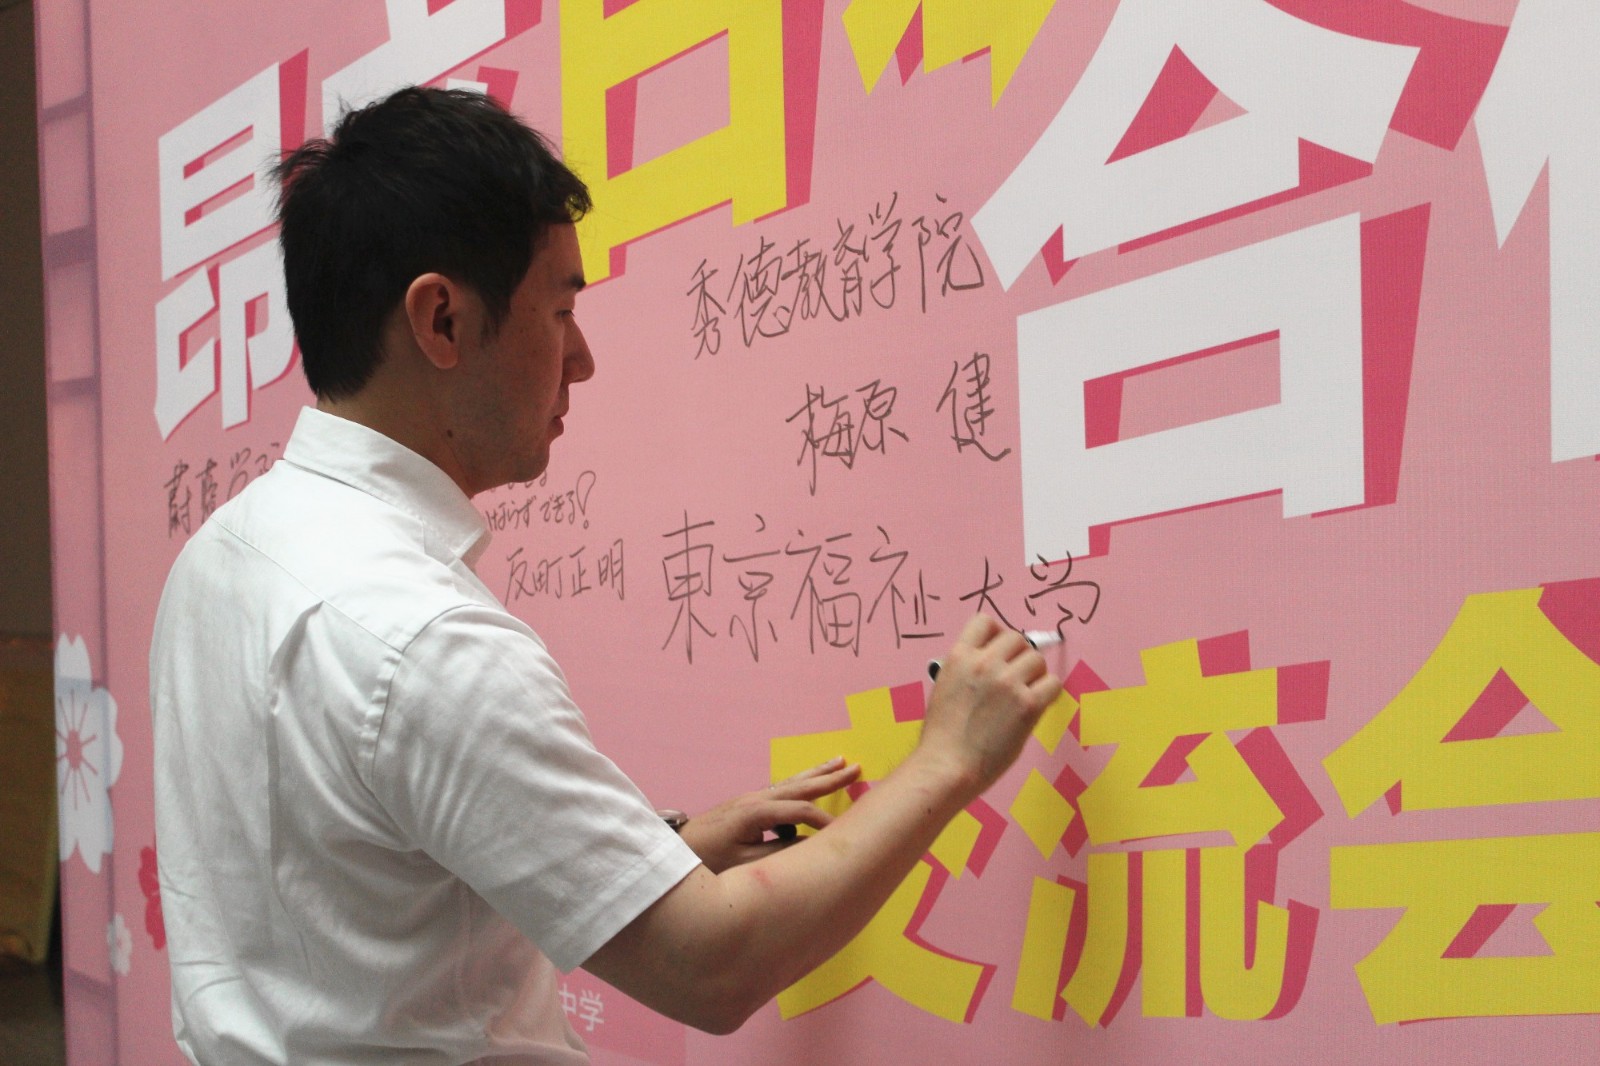 昂立日
合
秀德教育学院
梅原 健
蔚藍学院
ばらずできる!
反町正明
東京福祉大学
交流会
中学